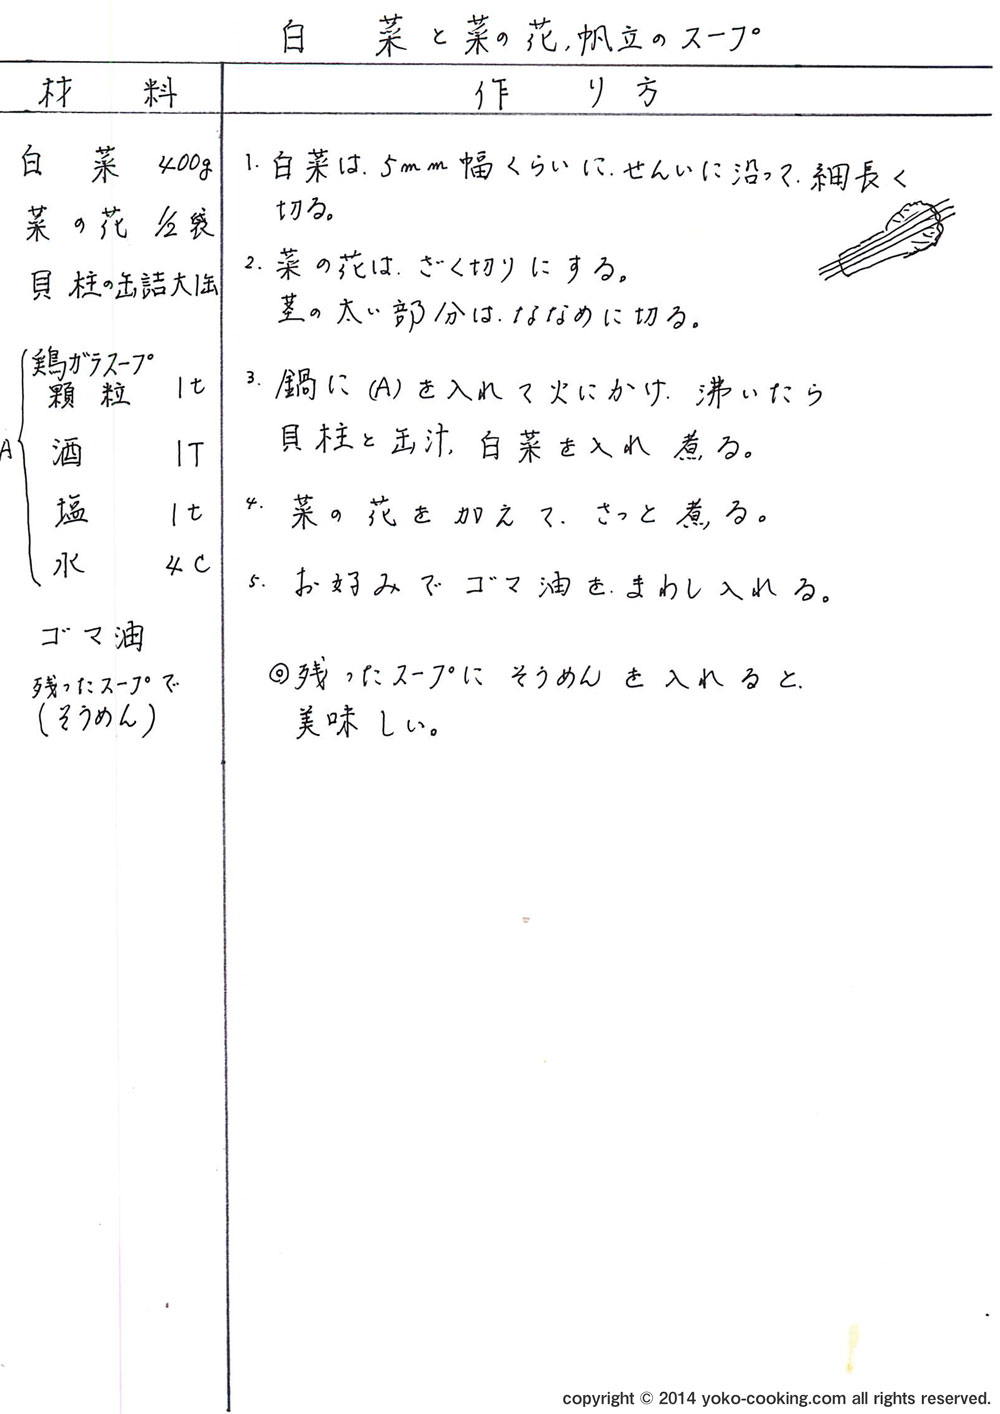 白菜と菜の花、帆立のスープ
材料
作り方
白菜 400g
菜の花 1/2袋
貝柱の缶詰大1缶
A
鶏ガラスープ
顆粒 1t
酒 1T
塩 1t
水 4C
ゴマ油
残ったスープで
(そうめん)
1. 白菜は、5mm幅くらいに、せんいに沿って、細長く
切る。
2. 菜の花は、ざく切りにする。
茎の太い部分は、ななめに切る。
3. 鍋に(A)を入れて火にかけ、沸いたら
貝柱と缶汁、白菜を入れ煮る。
4. 菜の花を加えて、さっと煮る。
5. お好みでゴマ油を、まわし入れる。
◎残ったスープにそうめんを入れると、
美味しい。
copyright © 2014 yoko-cooking.com all rights reserved.